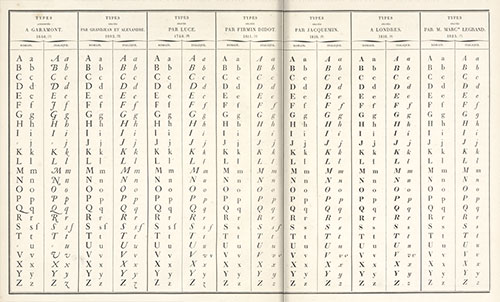 TYPES TYPES TYPES TYPES TYPES TYPES TYPES
A GARAMONT. PAR GRANDJEAN ET ALEXANDRE. PAR LUCE. PAR FIRMIN DIDOT. PAR JACQUEMIN. A LONDRES. PAR M. MARC. LEGRAND.
ROMAIN. ITALIQUE. ROMAIN. ITALIQUE. ROMAIN. ITALIQUE. ROMAIN. ITALIQUE. ROMAIN. ITALIQUE. ROMAIN. ITALIQUE. ROMAIN. ITALIQUE.
A a A a A a A a A a A a A a A a A a A a A a A a A a A a
B b B b B b B b B b B b B b B b B b B b B b B b B b B b
C c C c C c C c C c C c C c C c C c C c C c C c C c C c
D d D d D d D d D d D d D d D d D d D d D d D d D d D d
E e E e E e E e E e E e E e E e E e E e E e E e E e E e
F f F f F f F f F f F f F f F f F f F f F f F f F f F f
G g G g G g G g G g G g G g G g G g G g G g G g G g G g
H h H h H h H h H h H h H h H h H h H h H h H h H h H h
I i I i I i I i I i I i I i I i I i I i I i I i I i I i
j j j j j j j j j j j j j j
K k K k K k K k K k K k K k K k K k K k K k K k K k K k
L l L l L l L l L l L l L l L l L l L l L l L l L l L l
M m M m M m M m M m M m M m M m M m M m M m M m M m M m
N n N n N n N n N n N n N n N n N n N n N n N n N n N n
O o O o O o O o O o O o O o O o O o O o O o O o O o O o
P p P p P p P p P p P p P p P p P p P p P p P p P p P p
Q q Q q Q q Q q Q q Q q Q q Q q Q q Q q Q q Q q Q q Q q
R r R r R r R r R r R r R r R r R r R r R r R r R r R r
S sſ S sſ S sſ S sſ S sſ S sſ S s S s S s S s S s S s S s S s
T t T t T t T t T t T t T t T t T t T t T t T t T t T t
u u U u U u U u U u U u U u U u U u U u U u U u U u
V v V v V v V v V v V v V v V v V v V v V v V v V v V v
X x X x X x X x X x X x X x X x X x X x X x X x X x X x
Y y Y y Y y Y y Y y Y y Y y Y y Y y Y y Y y Y y Y y Y y
Z z Z z Z z Z z Z z Z z Z z Z z Z z Z z Z z Z z Z z Z z